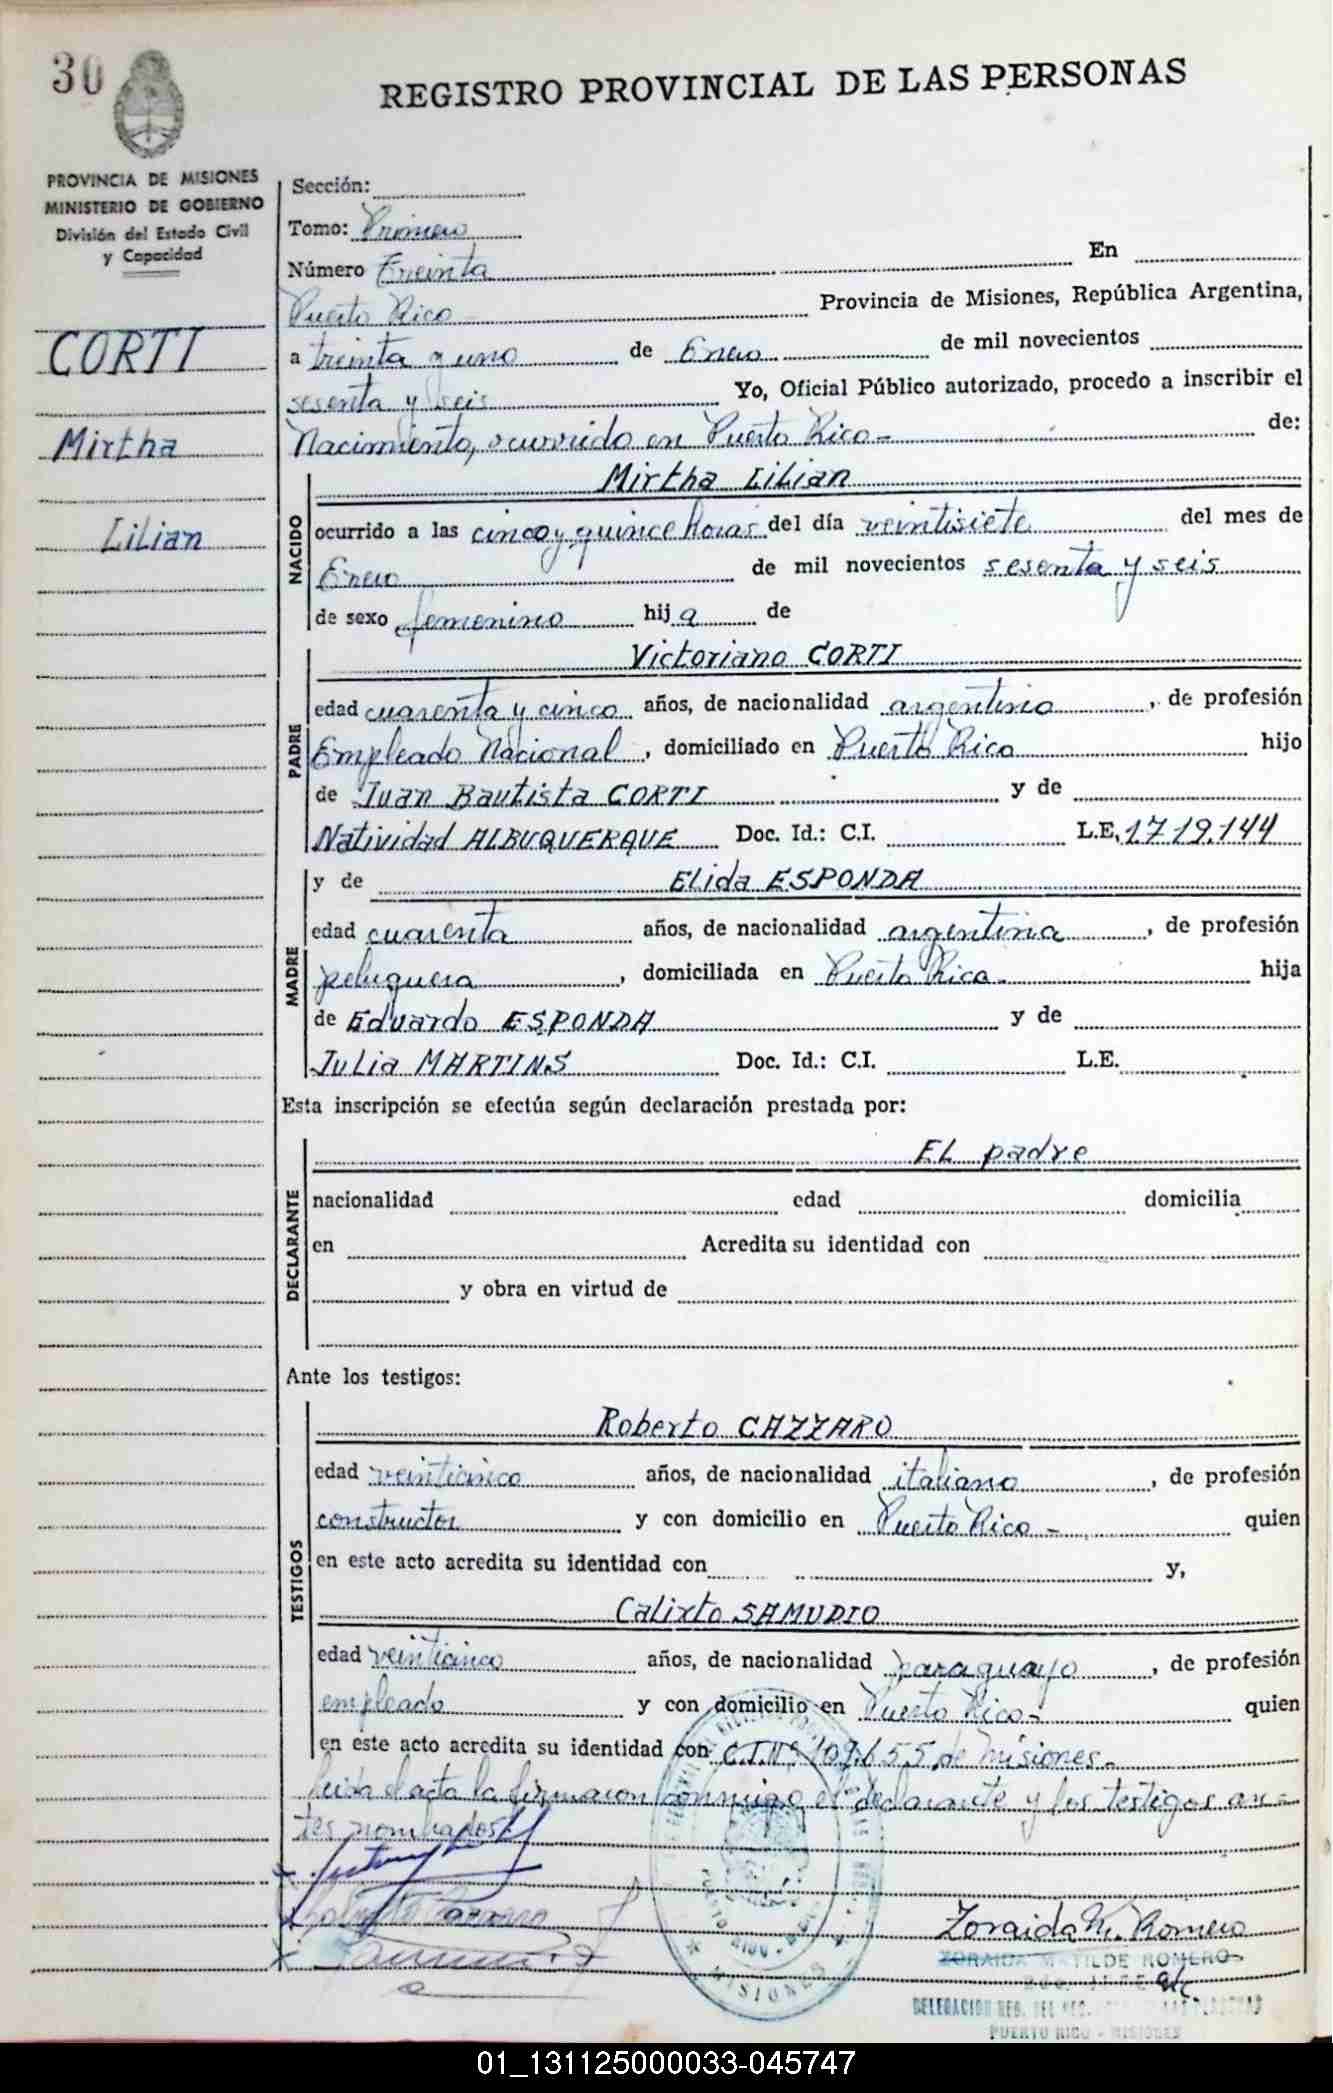 30
REGISTRO PROVINCIAL DE LAS PERSONAS
PROVINCIA DE MISIONES
MINISTERIO DE GOBIERNO
División del Estado Civil
y Capacidad
CORTI
Mirtha
Lilian
Sección:
Tomo: Primero
Número Treinta En
Puerto Rico Provincia de Misiones, República Argentina,
a treinta y uno de Enero de mil novecientos
sesenta y seis Yo, Oficial Público autorizado, procedo a inscribir el
Nacimiento, ocurrido en Puerto Rico- de:
NACIDO
Mirtha Lilian
ocurrido a las cinco y quince horas del día veintisiete del mes de
Enero de mil novecientos sesenta y seis
de sexo femenino hij a de
PADRE
Victoriano CORTI
edad cuarenta y cinco años, de nacionalidad argentino, de profesión
Empleado Nacional, domiciliado en Puerto Rico hijo
de Juan Bautista CORTI y de
Natividad ALBUQUERQUE Doc. Id.: C.I. L.E. 1.719.144
MADRE
y de Elida ESPONDA
edad cuarenta años, de nacionalidad argentina, de profesión
peluquera, domiciliada en Puerto Rico- hija
de Eduardo ESPONDA y de
Julia MARTINS Doc. Id.: C.I. L.E.
Esta inscripción se efectúa según declaración prestada por:
DECLARANTE
EL padre
nacionalidad edad domicilia
en Acredita su identidad con
y obra en virtud de
Ante los testigos:
TESTIGOS
Roberto CAZZARO
edad veinticinco años, de nacionalidad italiano, de profesión
constructor y con domicilio en Puerto Rico- quien
en este acto acredita su identidad con y,
Calixto SAMUDIO
edad veinticinco años, de nacionalidad paraguayo, de profesión
empleado y con domicilio en Puerto Rico- quien
en este acto acredita su identidad con C.I.Nº 109.655 de Misiones.-
Leida el acta la firmaron conmigo el declarante y los testigos an-
tes nombrados.
Zoraida M. Romero
ZORAIDA MATILDE ROMERO
DELEGACION REG.
PUERTO RICO - MISIONES
MISIONES
01_131125000033-045747